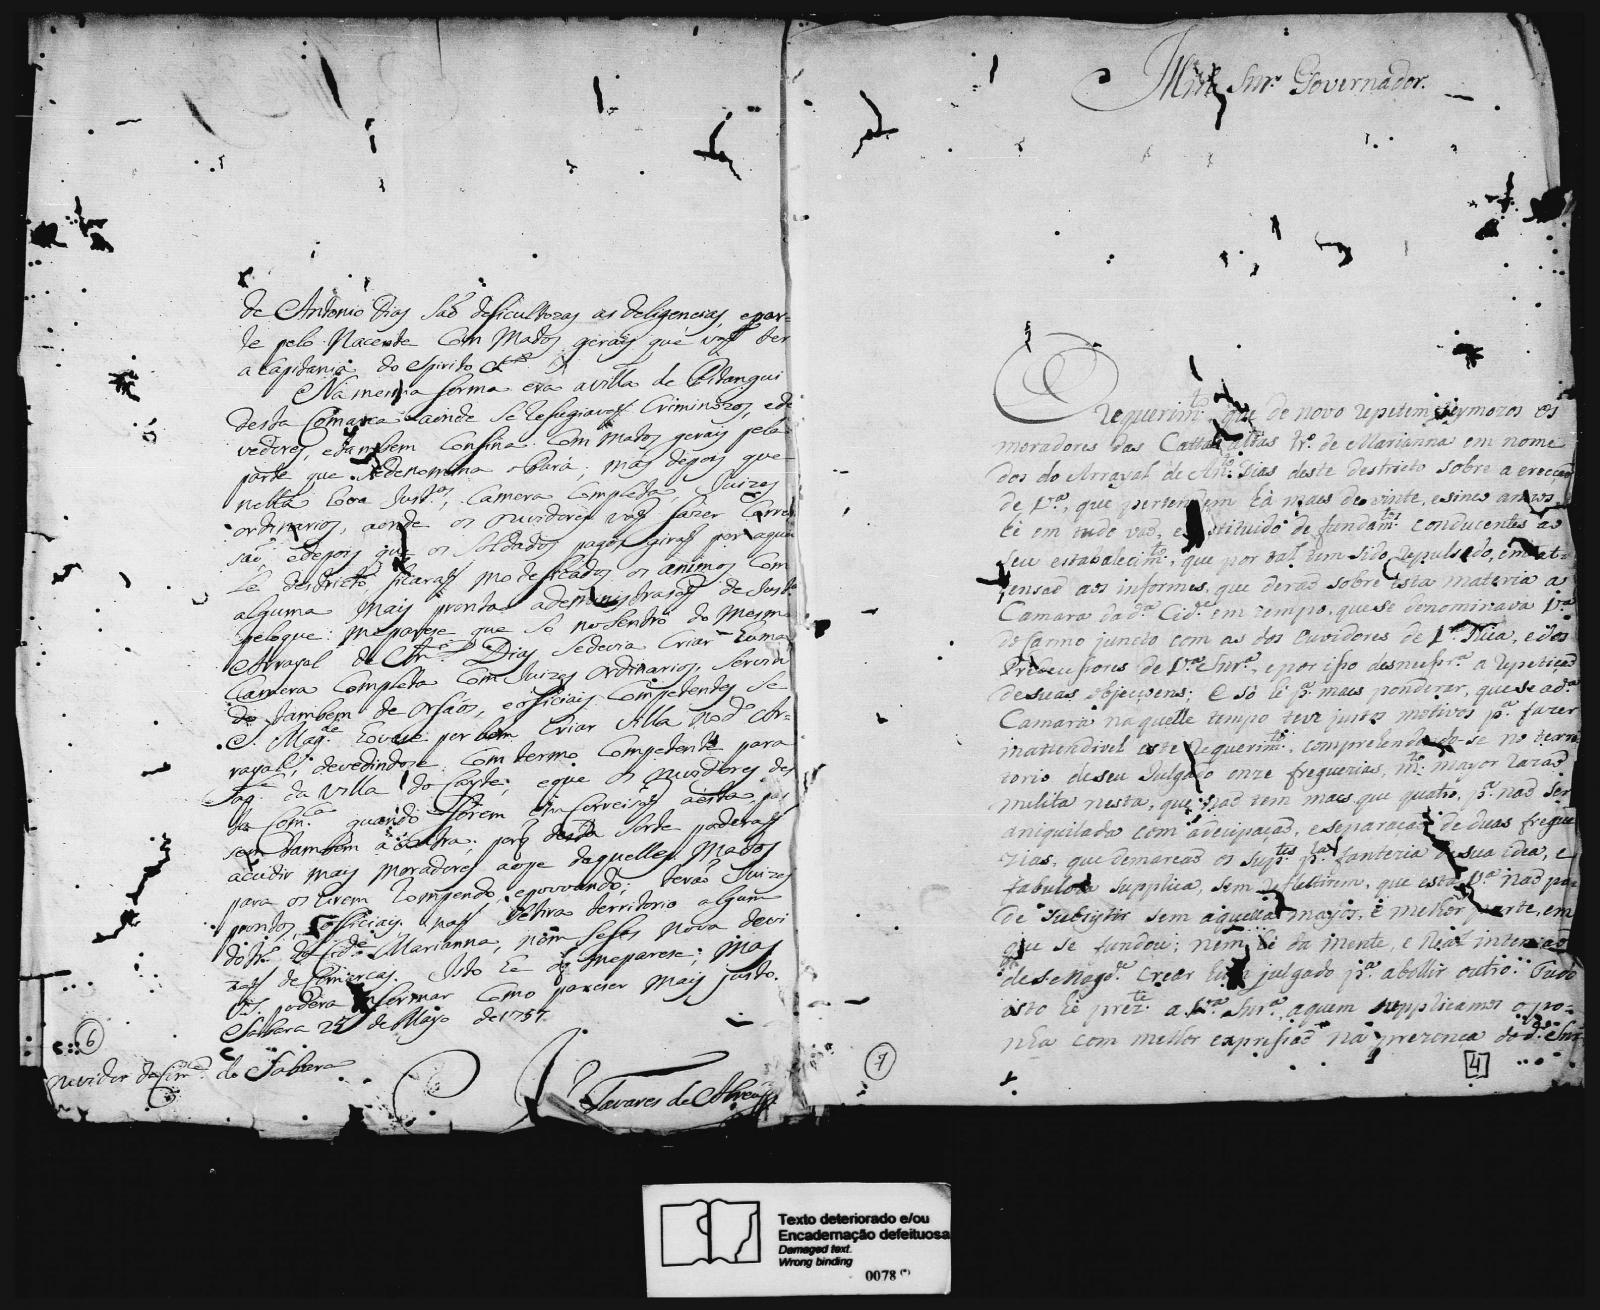 de Antonio Dias saõ deficultozas as deligencias, e par-
te pelo Nacente com Matos gerais que vaȷ̃ ter
a Capitania do Spirito Sto
Na mesma forma era a villa de Pitangui
desta Comarca aonde se Refugiavaȷ̃ Criminozos, e de
vedores, e tambem Confina com matos gerais pela
parte que se denomina o Pará; mas depois que
nella houve Justa, Camera Completa, Juizes
ordinarios, aonde os ouvidores vaȷ̃ fazer Correi
saõ, e depois que os soldados pagos giraȷ̃ por aquel
le destricto, ficaraȷ̃ modeficados os animos com
alguma mais pronta administrasaõ de Justa
pelo que me parese que só no Sentro do mesmo
Arrayal de Anto Dias se devia Criar huma
Camera Completa com Juizes ordinarios, servin
do tambem de orfaõs, e officiais Competentes Se
S. Magde houvese por bem Criar villa no do Ar-
rayal, devedindose com termo Competente para
da villa do Cayte, e que os ouvidores des
ta Comca quando forem em Correisaõ a esta, pas
sem tambem a outra; porq desta sorte poderaȷ̃
acudir mais moradores aqueles Matos
para os irem Rompendo, e povoando; teraõ Juizes
prontos, e officiais, naȷ̃ se tira territorio algum
do tro da Cide Marianna, nem se faz nova devi
zaȷ̃ de Comarcas. Isto he o q me parese; mas
VS. podera informar como parecer mais justo.
Sabara 25 de Mayo de 1757.
6
ouvidor da Comca do Sabara
Tavares de Abreu
Illmo Snr Governador.
O Requerimto que de novo repetem os
moradores das Cattas altas tro de Marianna em nome
dos do Arrayal de Anto Dias deste destricto sobre a erecçaõ
de Va, que pertendem há mais de vinte, e sinco annos
he em tudo vaõ, e destituido de fundamtos conducentes ao
seu estabalecimto, que por tal tem sido repulsado, em at-
tensaõ aos informes, que deraõ sobre esta materia a
Camara da da Cide em tempo, que se denominava Va
do Carmo juncto com as dos ouvidores de Va Rica, e dos
Predecessores de Va Snra, e por isso desnessra a repetiçaõ
de suas objeçoens; e só he pa mais ponderar, que se a da
Camara naquelle tempo teve justos motivos pa fazer
inattendivel este requerimto, comprehendendo-se no terri
torio de seu Julgado onze freguezias, mto mayor razaõ
milita nesta, que naõ tem mais que quatro, pa naõ ser
aniquilada com a decipaçaõ, e separaçaõ de duas fregue
zias, que demarcaõ os Suptes pa fanteria de sua idea, e
fabuloza supplica, sem reflectirem, que esta Va naõ po-
de subsistir sem aquella mayor, e melhor parte, em
que se fundou; nem he da mente, e Real intensaõ
de S. Magde crear hum julgado pa abollir outro. Tudo
isto he prezte a Va Snra a quem supplicamos o po-
nha com melhor expresaõ na prezença do do Snr
7
4
Texto deteriorado e/ou
Encadernação defeituosa
Damaged text.
Wrong binding
0078 (*)